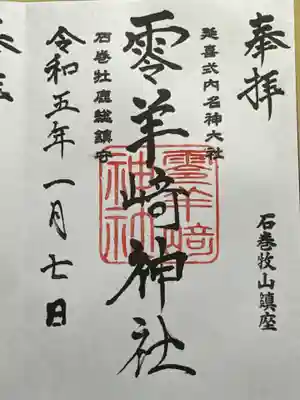 奉拝
石巻牧山鎮座
延喜式内名神大社
零羊崎神社
零羊崎
神社
石巻牡鹿総鎮守
令和五年一月七日
奉拝